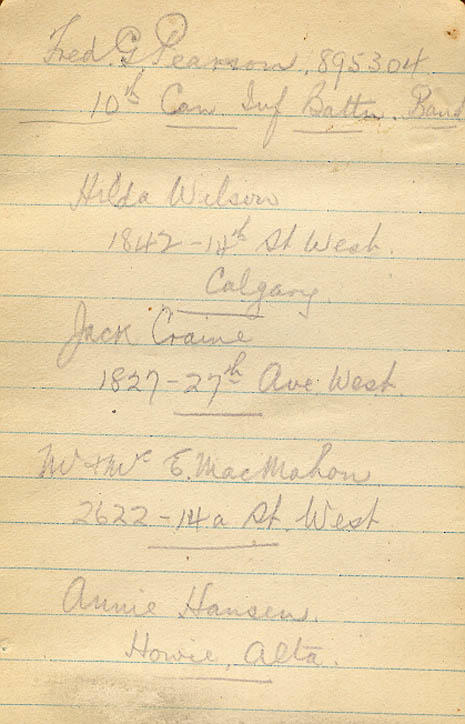 Fred. G Pearson, 895304
10th Can Inf Battn. Band
Hilda Wilson
1842 - 14th St West.
Calgary.
Jack Craine
1827 - 27th Ave West.
Mr & Mrs E. MacMahon
2622 - 14a St. West
Annie Hansen.
Howie, Alta.